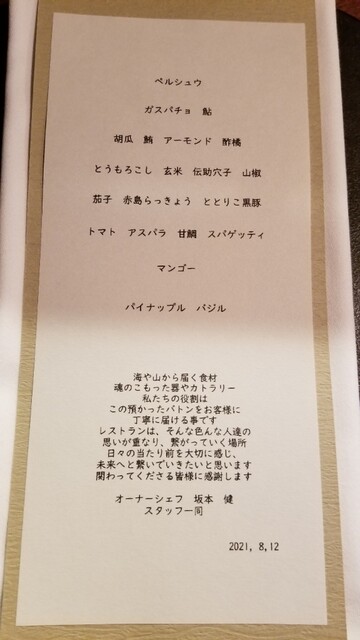 ペルシュウ
ガスパチョ 鮎
胡瓜 鮪 アーモンド 酢橘
とうもろこし 玄米 伝助穴子 山椒
茄子 赤島らっきょう ととりこ黒豚
トマト アスパラ 甘鯛 スパゲッティ
マンゴー
パイナップル バジル
海や山から届く食材
魂のこもった器やカトラリー
私たちの役割は
この預かったバトンをお客様に
丁寧に届ける事です
レストランは、そんな色んな人達の
思いが重なり、繋がっていく場所
日々の当たり前を大切に感じ、
未来へと繋いでいきたいと思います
関わってくださる皆様に感謝します
オーナーシェフ 坂本 健
スタッフ一同
2021, 8,12